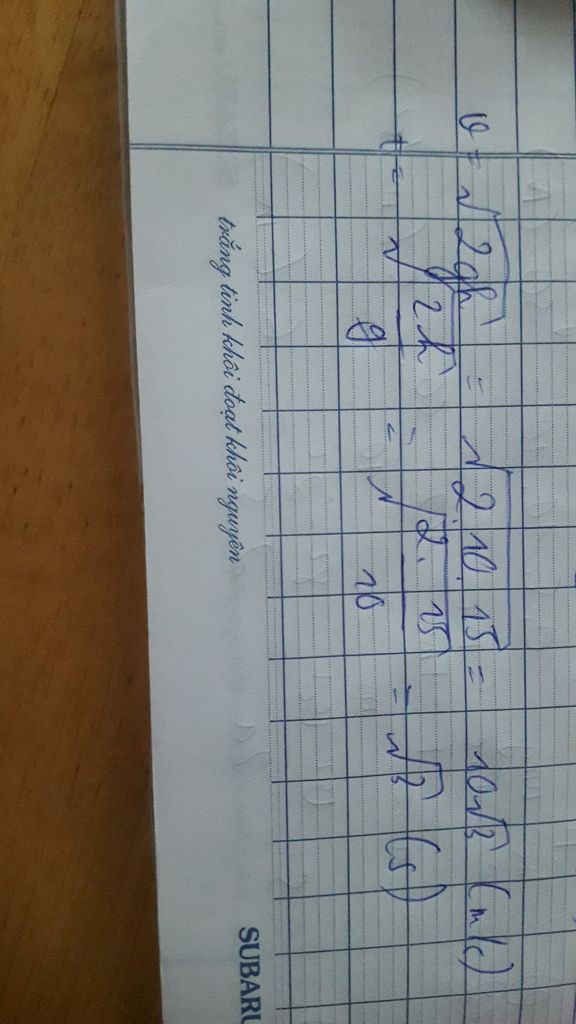 v = √2gh = √2.10.15 = 10√3 (m/s)
t = √2h/g = √2.15/10 = √3 (s)
trắng tinh khôi đoạt khôi nguyên
SUBARU